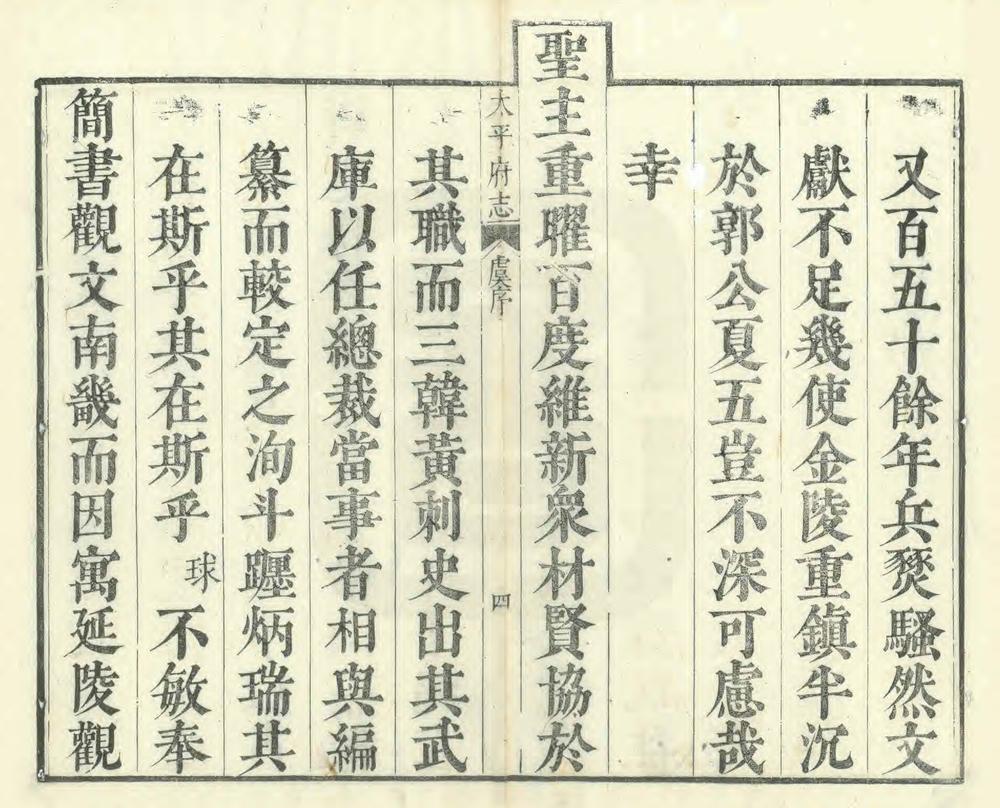 又百五十餘年兵燹騷然文
獻不足幾使金陵重鎮半沉
於郭公夏五豈不深可慮哉
幸
聖主重曜百度維新衆材賢協於
太平府志 虞序 四
其職而三韓黃刺史出其武
庫以任總裁當事者相與編
纂而較定之洵斗躔炳瑞其
在斯乎其在斯乎球不敏奉
簡書觀文南畿而因寓延陵觀